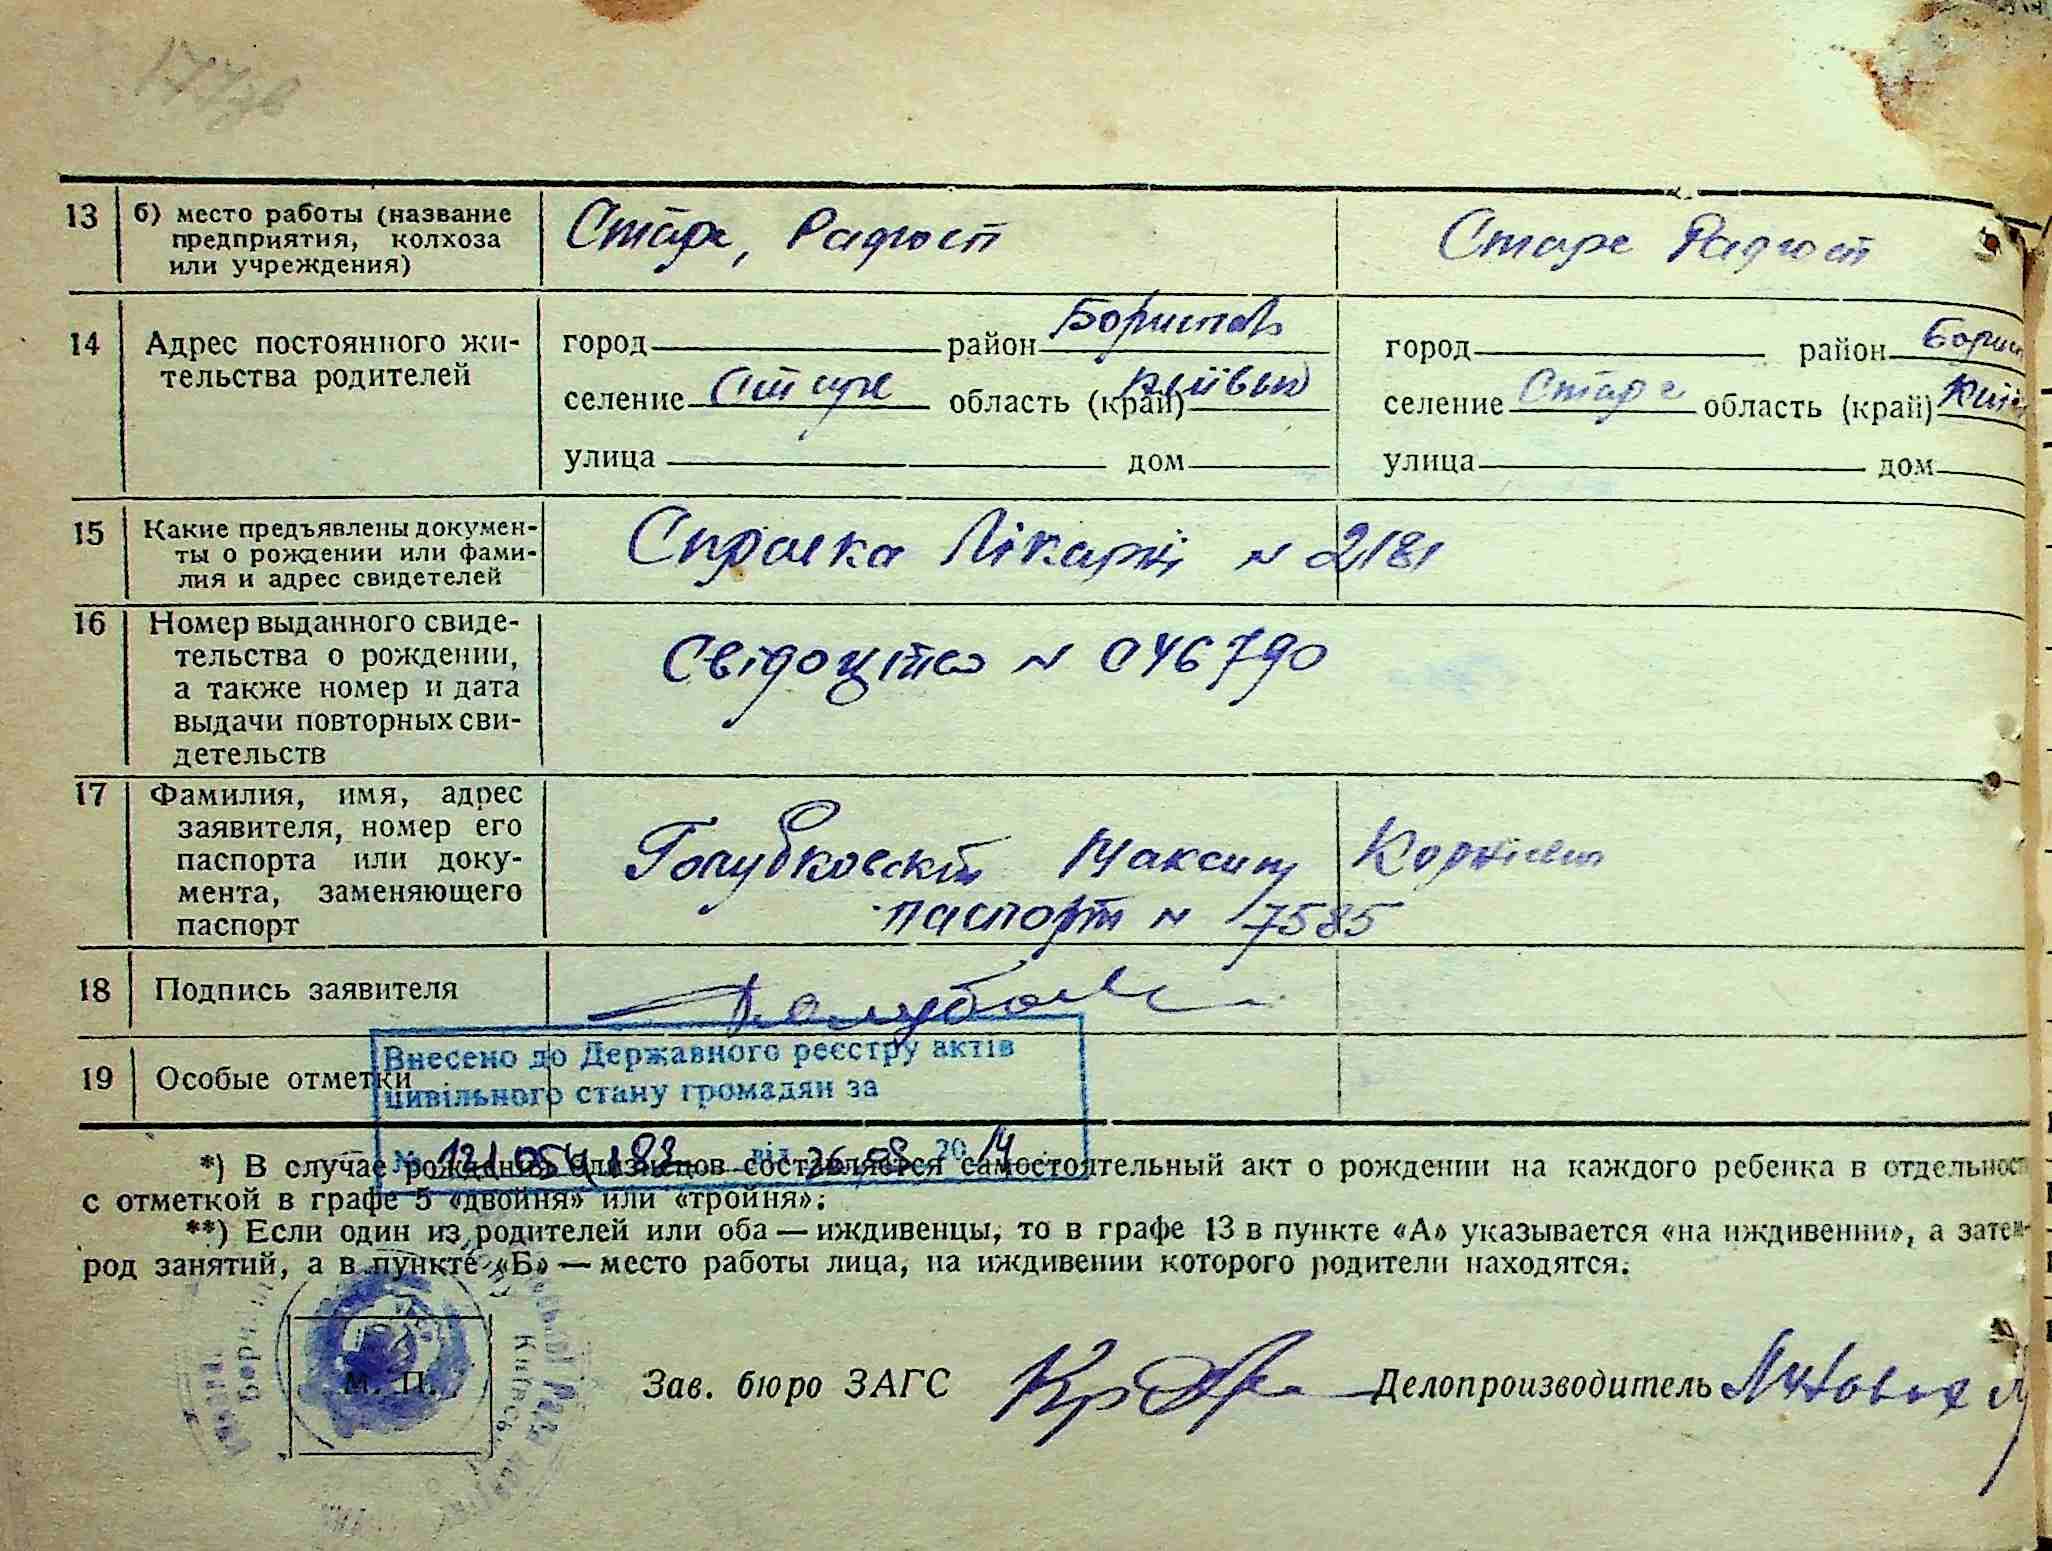 13 б) место работы (название Старе, Радгосп Старе Радгосп
предприятия, колхоза
или учреждения)
14 Адрес постоянного жи-
тельства родителей
город район Бориспіль город район Борис
селение Старе область (край) Київськ селение Старе область (край) Київ
улица дом улица дом
15 Какие предъявлены докумен-
ты о рождении или фами-
лия и адрес свидетелей
Справка Лікарні N 2181
16 Номер выданного свиде-
тельства о рождении,
а также номер и дата
выдачи повторных сви-
детельств
Свідоцтво N 046790
17 Фамилия, имя, адрес
заявителя, номер его
паспорта или доку-
мента, заменяющего
паспорт
Голубковский Максим Корнієв
паспорт N 7585
18 Подпись заявителя
19 Особые отметки
Внесено до Державного реєстру актів
цивільного стану громадян за
№ від 26 08 2014
*) В случае рождения близнецов составляется самостоятельный акт о рождении на каждого ребенка в отдельност
с отметкой в графе 5 «двойня» или «тройня».
**) Если один из родителей или оба — иждивенцы, то в графе 13 в пункте «А» указывается «на иждивении», а затем
род занятий, а в пункте «Б» — место работы лица, на иждивении которого родители находятся.
М. П.
Зав. бюро ЗАГС Делопроизводитель